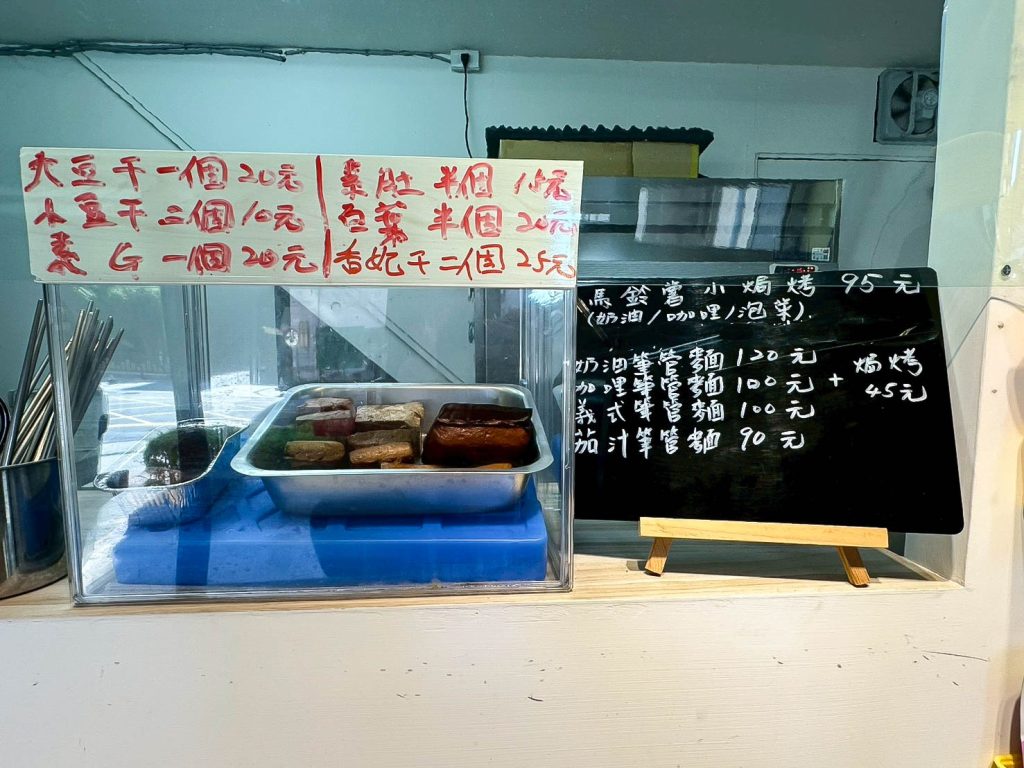 大豆干一個20元
小豆干二個10元
素G一個20元
素肚半個15元
百葉半個20元
香妃干二個25元
馬鈴薯小焗烤 95元
(奶油/咖哩/泡菜)
奶油筆管麵 120元
咖哩筆管麵 100元
義式筆管麵 100元
茄汁筆管麵 90元
+ 焗烤
45元